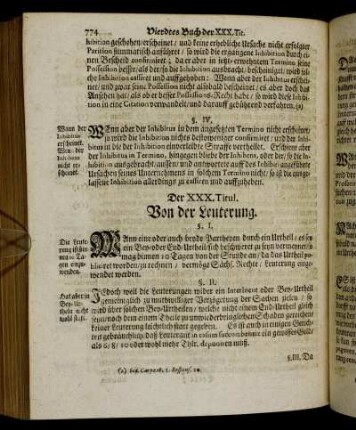 774 Vierdtes Buch der XXX. Tit.
hibition geschehen/ erscheinet / und keine erhebliche Ursache nicht erfolgter
Parition summarisch anführet / so wird die ergangene Inhibition durch ei-
nen Bescheid confirmiret; Da er aber in jetzt-erwehntem Termino seine
Possession besser/ als der/ so die Inhibition ausbracht/ bescheiniget/ wird sol-
che Inhibition cassiret und auffgehoben: Wenn aber der Inhibitus erschei-
net / und zwar seine Possession nicht alsbald bescheinet / es aber doch das
Ansehen hat/ als ob er besser Possessions-Recht habe / so wird diese Inhibi-
tion in eine Citation verwandelt/ und darauff gebührend verfahren. (a)
§. IV.
Wann der
Inhibitus
erscheinet.
Wenn der
Inhibens
nicht er-
scheinet.
WEnn aber der Inhibitus in dem angesetzten Termino nicht erscheinet/
so wird die Inhibition nichts destoweniger confirmiret / und der Inhibi-
tus in die der Inhibition einverleibte Straffe vertheilet. Erschiene aber
der Inhibitus in Termino, hingegen bliebe der Inhibens, oder der / so die In-
hibition ausgebracht/ aussen/ und antwortete auff des Inhibiti Ansuchen we-
gen seines Ungehorsams in solchem Termino nicht/ so ist die ausge-
lassene Inhibition allerdings zu cassiren und auffzuheben.
Der XXX. Titul.
Von der Leuterung.
§. I.
Die Leute-
rung ist bin-
nen 10 Ta-
gen einzu-
wenden.
WAnn eine oder auch beyde Partheyen durch ein Urtheil / es sey
ein Bey- oder End-Urtheil sich beschweret zu seyn vermeynen/
mag binnen 10 Tagen von der Stunde an / da das Urtheil pu-
bliciret worden/ zu rechnen / vermöge Sächs. Rechte / Leuterung einge-
wendet werden.
§. II.
Hat aber in
Bey-Ur-
theln nicht
wohl statt.
JEdoch weil die Leuterungen wider ein Interlocut oder Bey-Urtheil
gemeiniglich zu muthwilliger Verzögerung der Sachen zielen / so
wird über solchen Bey-Urtheilen / welche nicht einem End-Urtheil gleich
seyn noch dem einem Theile ein unwiederbringlichen Schaden gereichen
keiner Leuterung leichtlich statt gegeben. Es ist auch in einigen Gerich-
ten gebräuchlich/ daß Leuterant
als 6/ 8/ 10 oder wohl mehr Thlr. deponiren muß.
§. III. Da